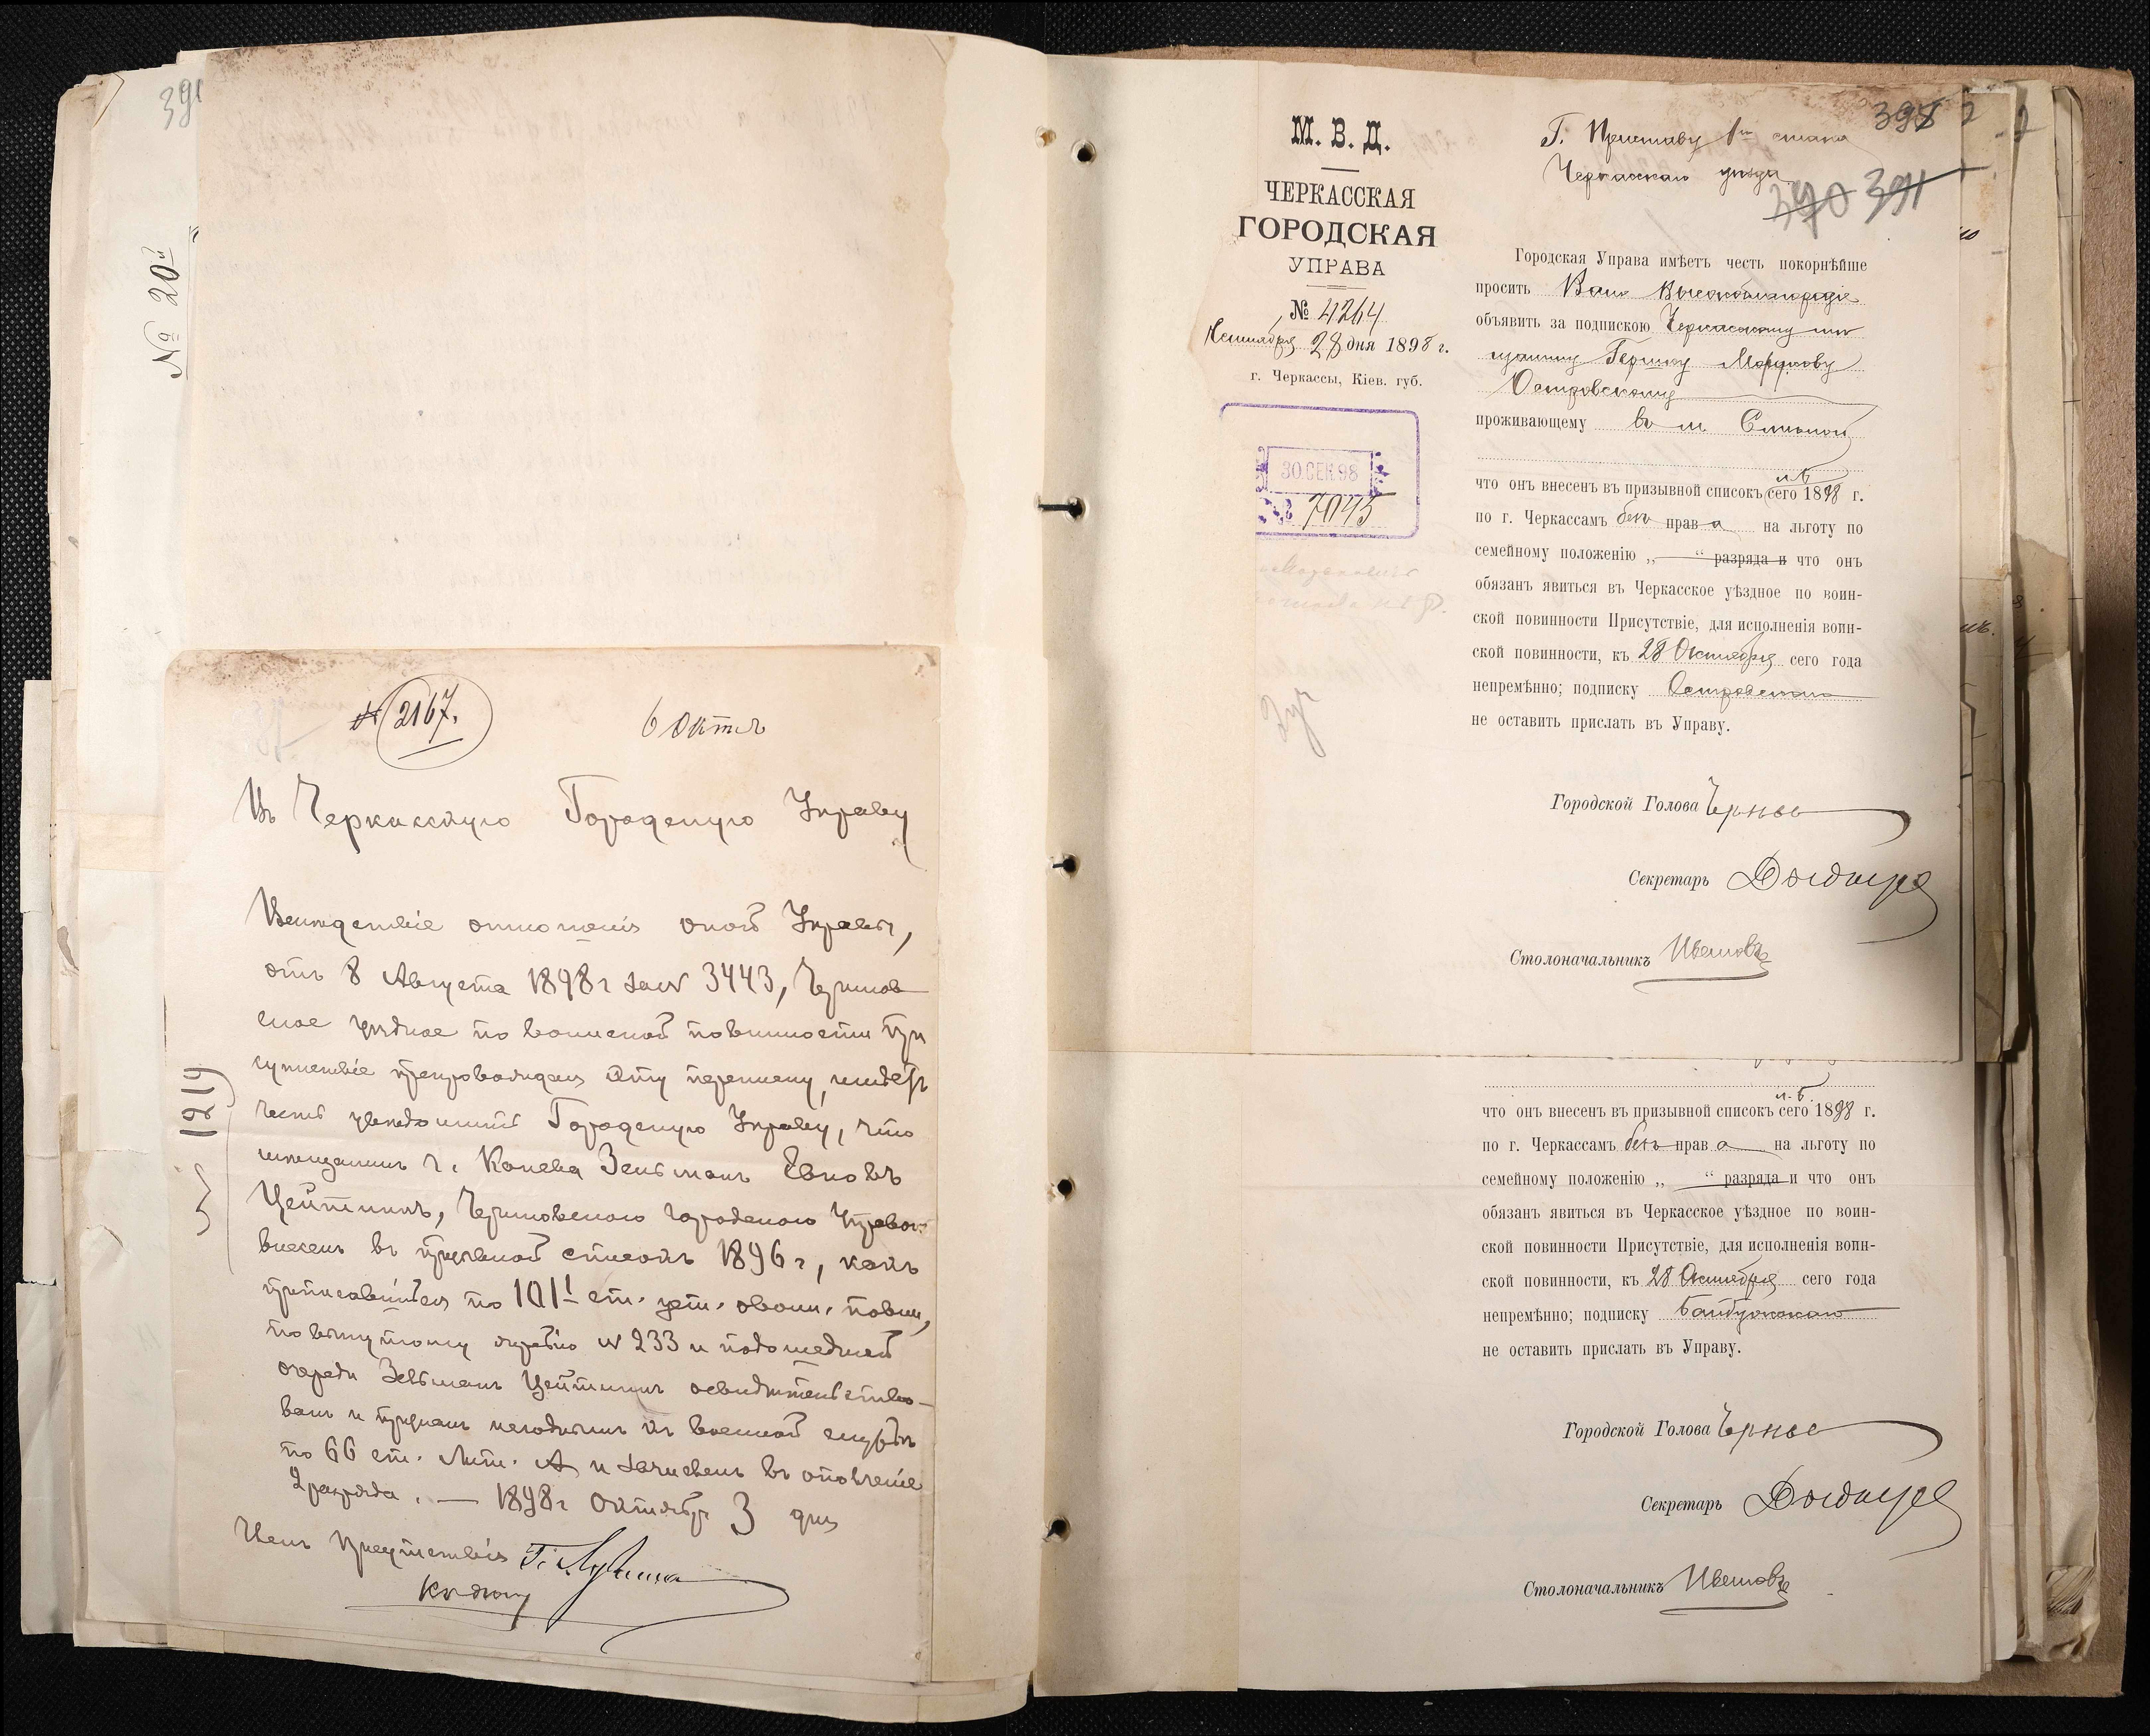 391
№ 20й
№ 2167.
6 Октяб
Въ Черкасскую Городскую Управу
Вследствіе отношенія оной Управы,
отъ 8 Августа 1898 г за № 3443,
уездное по воинской повинности При
сутствіе препровождая эту переписку, имеетъ
честь уведомить Городскую Управу, что
мещанинъ г. Канева Зельманъ
Цейтлинъ, городскою Управою
внесенъ въ призывной списокъ 1896 г, какъ
приписавшійся по 101 ст. уст. о воин. повин,
по вынутому жребію № 233 и подошедшей
очереди Зельманъ Цейтлинъ освидетельство-
ванъ и признанъ негоднымъ къ военной службе
по 66 ст. Лит. А и зачисленъ въ ополченіе
2 разряда. — 1898 г Октября 3 дня
Членъ Присутствія
К делу
М. В. Д.
ЧЕРКАССКАЯ
ГОРОДСКАЯ
УПРАВА
№ 4264
Сентября 28 дня 1898 г.
г. Черкассы, Кіев. губ.
30 СЕН 98
№ 7045
392
390 391
Г. Приставу 1го стана
Черкасскаго уезда
Городская Управа имѣетъ честь покорнѣйше
просить Ваше Высокоблагородіе
объявить за подпискою Черкасскому ме
щанину Гершку
Островскому
проживающему въ м. Смелой
что онъ внесенъ въ призывной списокъ сего 1898 г.
по г. Черкассамъ безъ права на льготу по
семейному положенію „ “ разряда и что онъ
обязанъ явиться въ Черкасское уѣздное по воин-
ской повинности Присутствіе, для исполненія воин-
ской повинности, къ 28 Октября сего года
непремѣнно; подписку Островскаго
не оставить прислать въ Управу.
Городской Голова
Секретарь
Столоначальникъ Ивановъ
что онъ внесенъ въ призывной списокъ сего 1898 г.
по г. Черкассамъ безъ права на льготу по
семейному положенію „ “ разряда и что онъ
обязанъ явиться въ Черкасское уѣздное по воин-
ской повинности Присутствіе, для исполненія воин-
ской повинности, къ 28 Октября сего года
непремѣнно; подписку
не оставить прислать въ Управу.
Городской Голова
Секретарь
Столоначальникъ Ивановъ